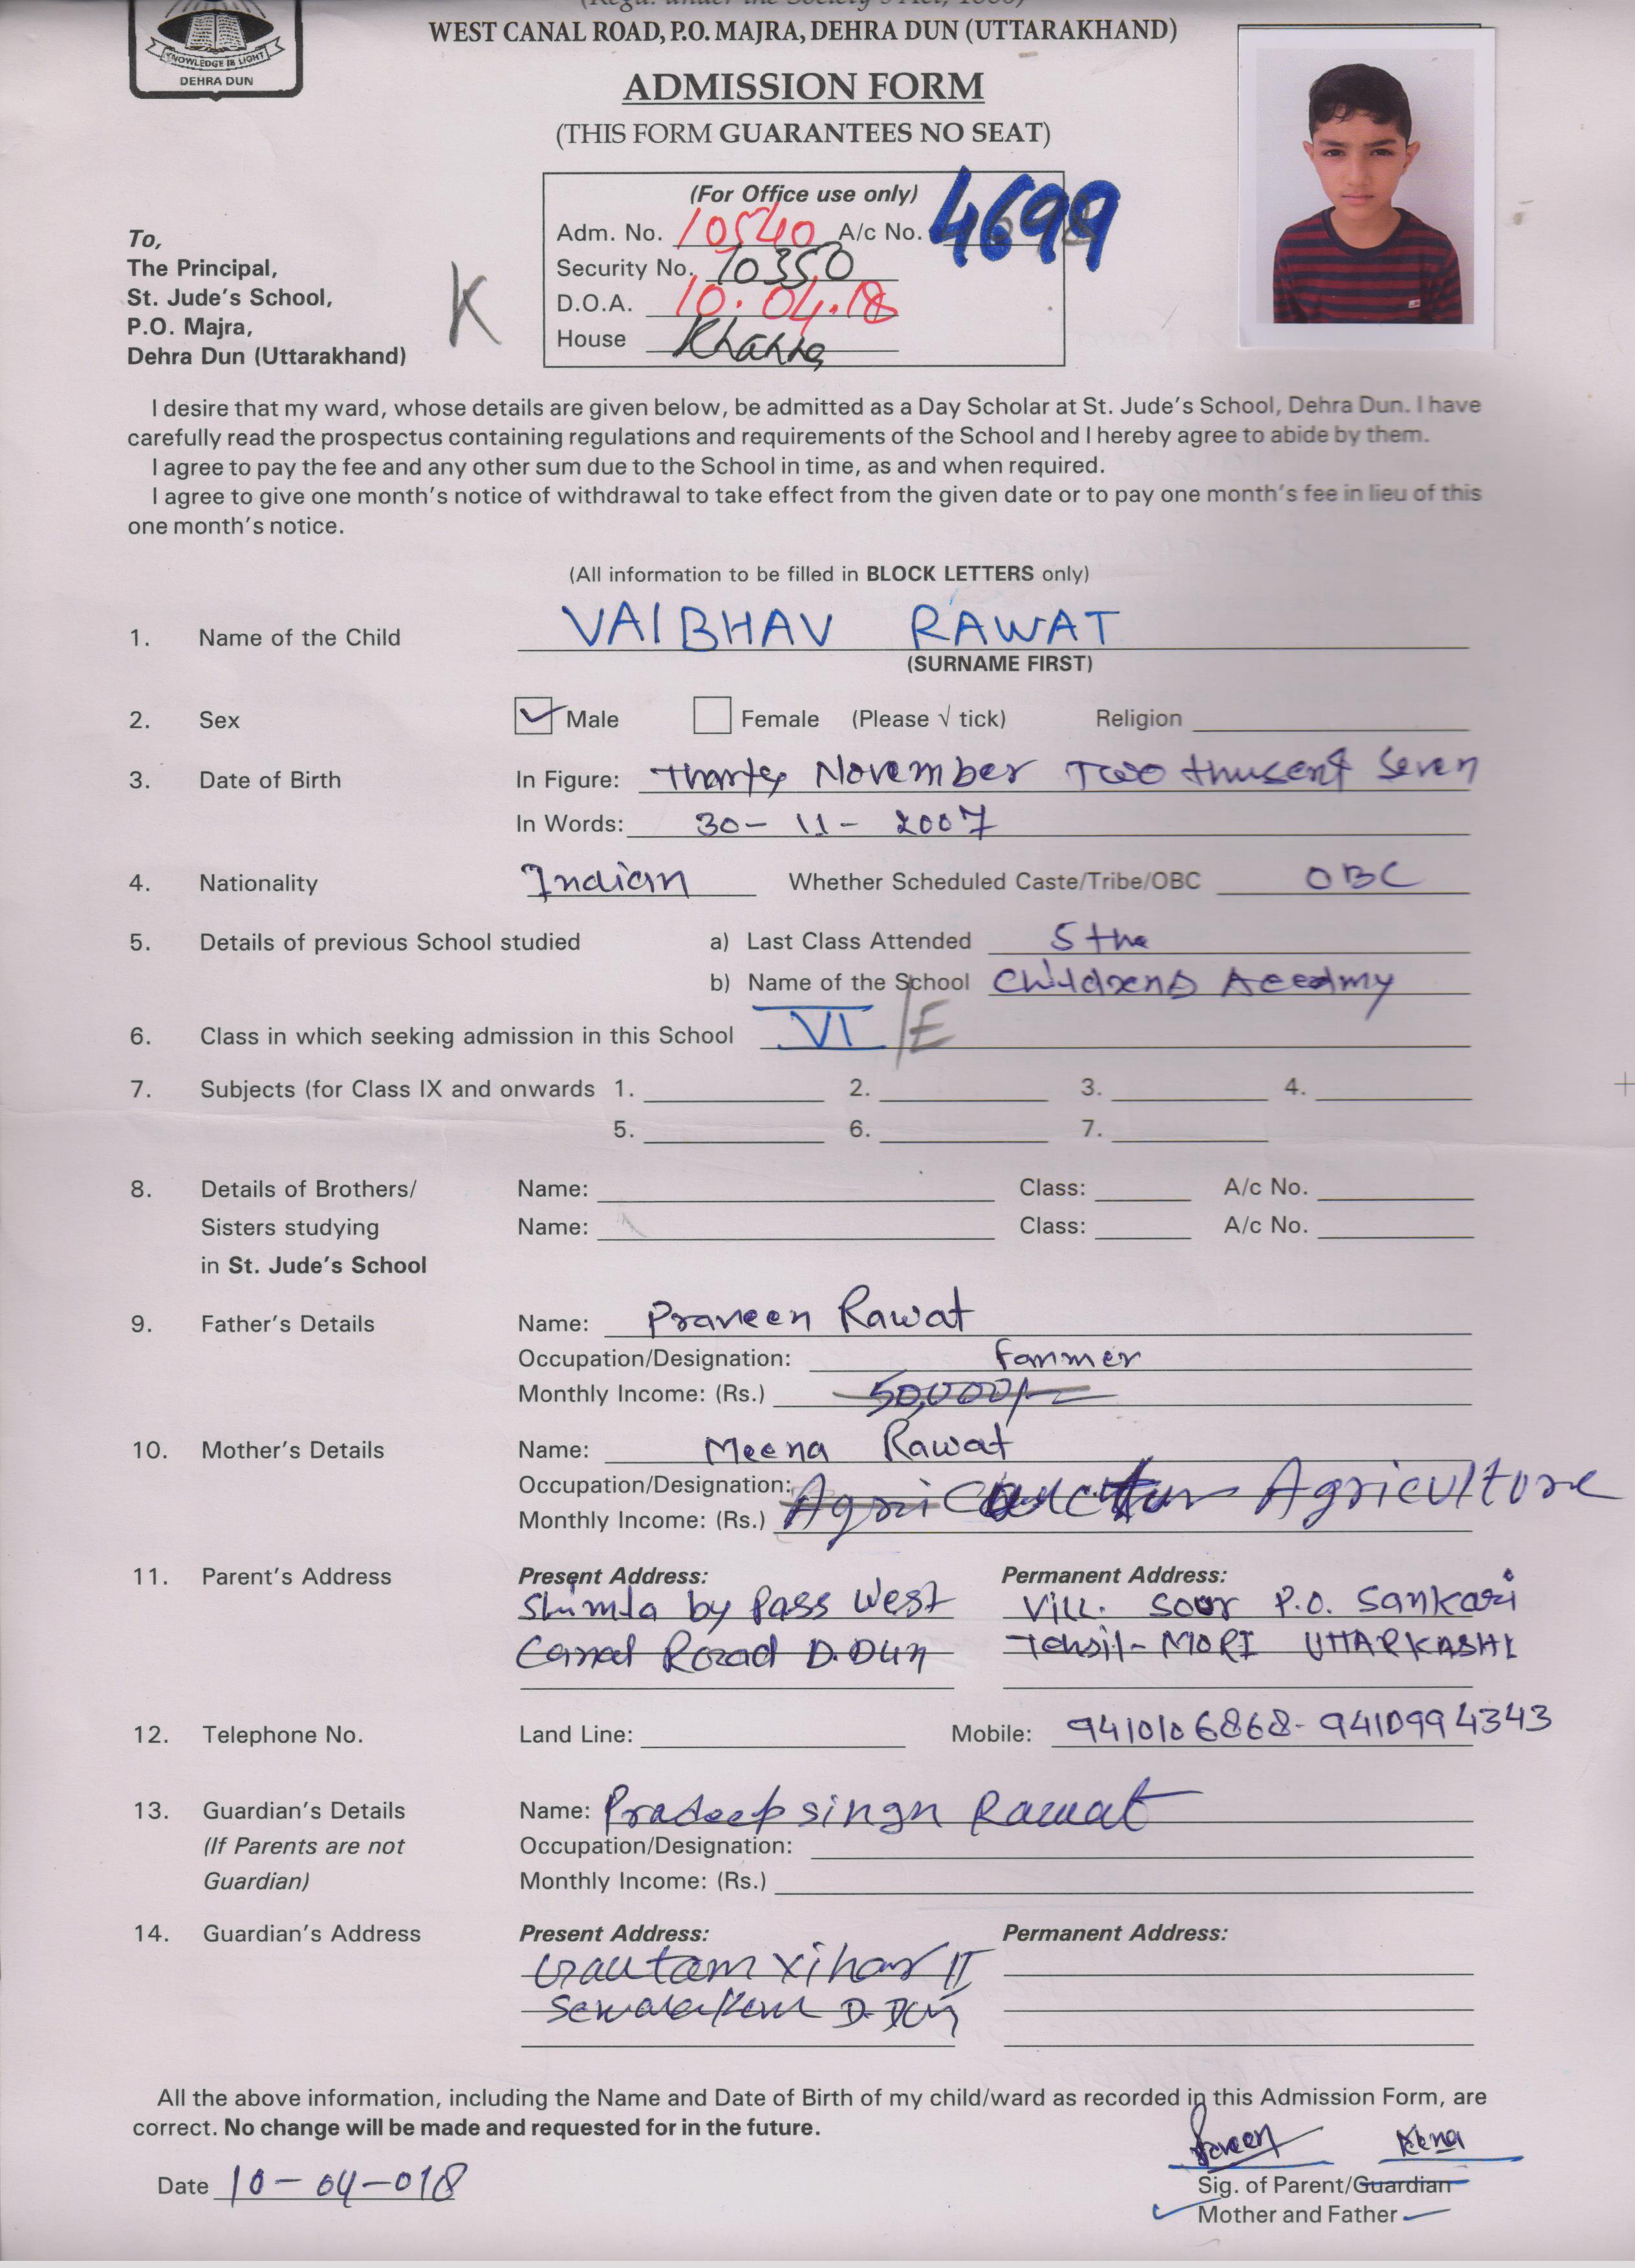 (Regd. under the Society's Act, 1860)
WEST CANAL ROAD, P.O. MAJRA, DEHRA DUN (UTTARAKHAND)
KNOWLEDGE IS LIGHT
DEHRA DUN
ADMISSION FORM
(THIS FORM GUARANTEES NO SEAT)
(For Office use only)
Adm. No. 10540 A/c No. 4699
Security No. 10350
D.O.A. 10.04.18
House Khanna
To,
The Principal,
St. Jude's School,
P.O. Majra,
Dehra Dun (Uttarakhand)
K
I desire that my ward, whose details are given below, be admitted as a Day Scholar at St. Jude's School, Dehra Dun. I have
carefully read the prospectus containing regulations and requirements of the School and I hereby agree to abide by them.
I agree to pay the fee and any other sum due to the School in time, as and when required.
I agree to give one month's notice of withdrawal to take effect from the given date or to pay one month's fee in lieu of this
one month's notice.
(All information to be filled in BLOCK LETTERS only)
1. Name of the Child VAIBHAV RAWAT
(SURNAME FIRST)
2. Sex Male Female (Please √ tick) Religion
3. Date of Birth In Figure: Tharty November Two thusent Seven
In Words: 30-11-2007
4. Nationality Indian Whether Scheduled Caste/Tribe/OBC OBC
5. Details of previous School studied a) Last Class Attended 5the
b) Name of the School Childrens Aceedmy
6. Class in which seeking admission in this School VI/E
7. Subjects (for Class IX and onwards 1. 2. 3. 4.
5. 6. 7.
8. Details of Brothers/ Name: Class: A/c No.
Sisters studying Name: Class: A/c No.
in St. Jude's School
9. Father's Details Name: Praveen Rawat
Occupation/Designation: Fanmer
Monthly Income: (Rs.) 50,000/-
10. Mother's Details Name: Meena Rawat
Occupation/Designation: Agriculture
Monthly Income: (Rs.)
11. Parent's Address Present Address: Permanent Address:
Shimla by Pass West Vill. Sour P.O. Sankari
Canal Road D.Dun Tehsil- MORI UTTARKASHI
12. Telephone No. Land Line: Mobile: 9410106868-9410994343
13. Guardian's Details Name: Pradeep singh Rawat
(If Parents are not Occupation/Designation:
Guardian) Monthly Income: (Rs.)
14. Guardian's Address Present Address: Permanent Address:
Gautam Vihar II
D.Dun
All the above information, including the Name and Date of Birth of my child/ward as recorded in this Admission Form, are
correct. No change will be made and requested for in the future.
Date 10-04-018
Sig. of Parent/Guardian
Mother and Father